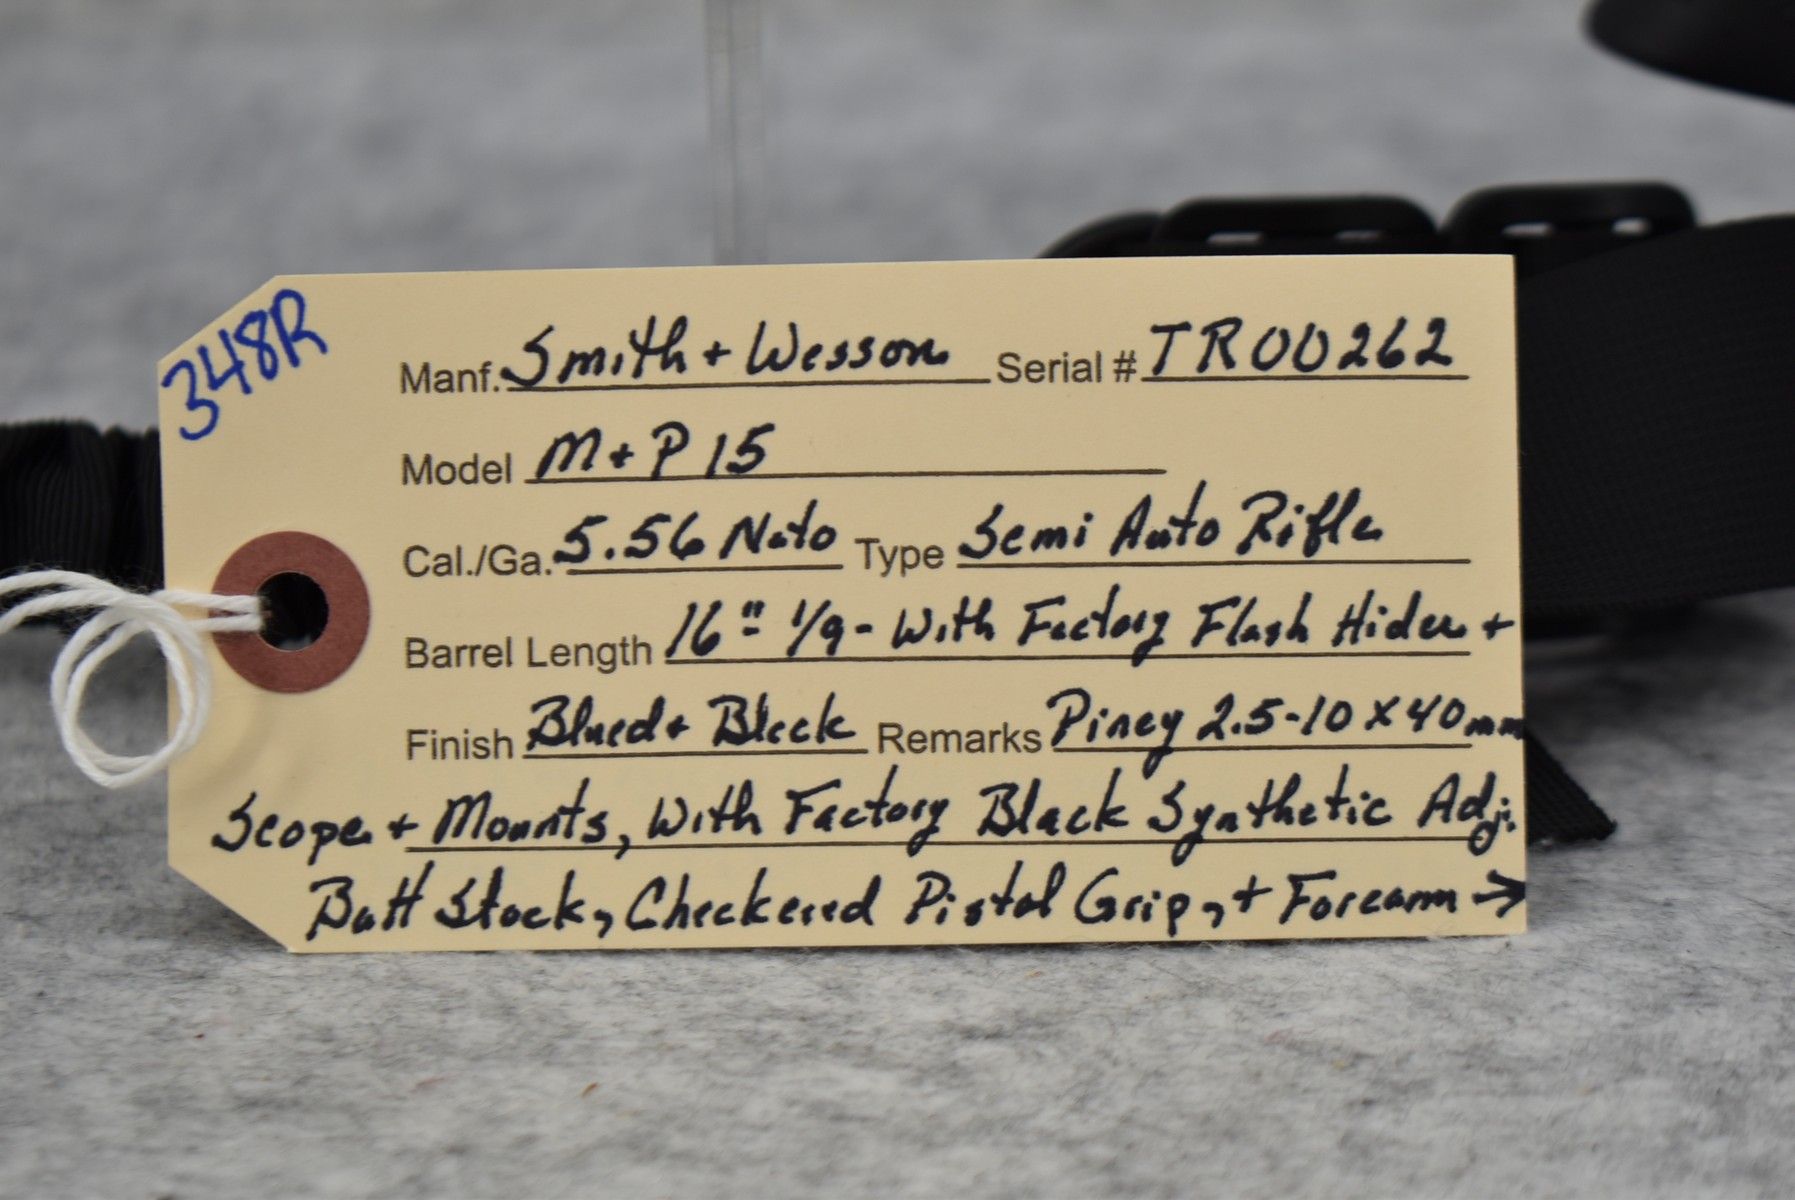 348R
Manf. Smith + Wesson Serial # TR00262
Model M+P 15
Cal./Ga. 5.56 Nato Type Semi Auto Rifle
Barrel Length 16" 1/9 - With Factory Flash Hider +
Finish Blued + Black Remarks Piney 2.5-10 X 40mm
Scope + Mounts, With Factory Black Synthetic Adj.
Butt Stock, Checkered Pistol Grip, + Forearm →